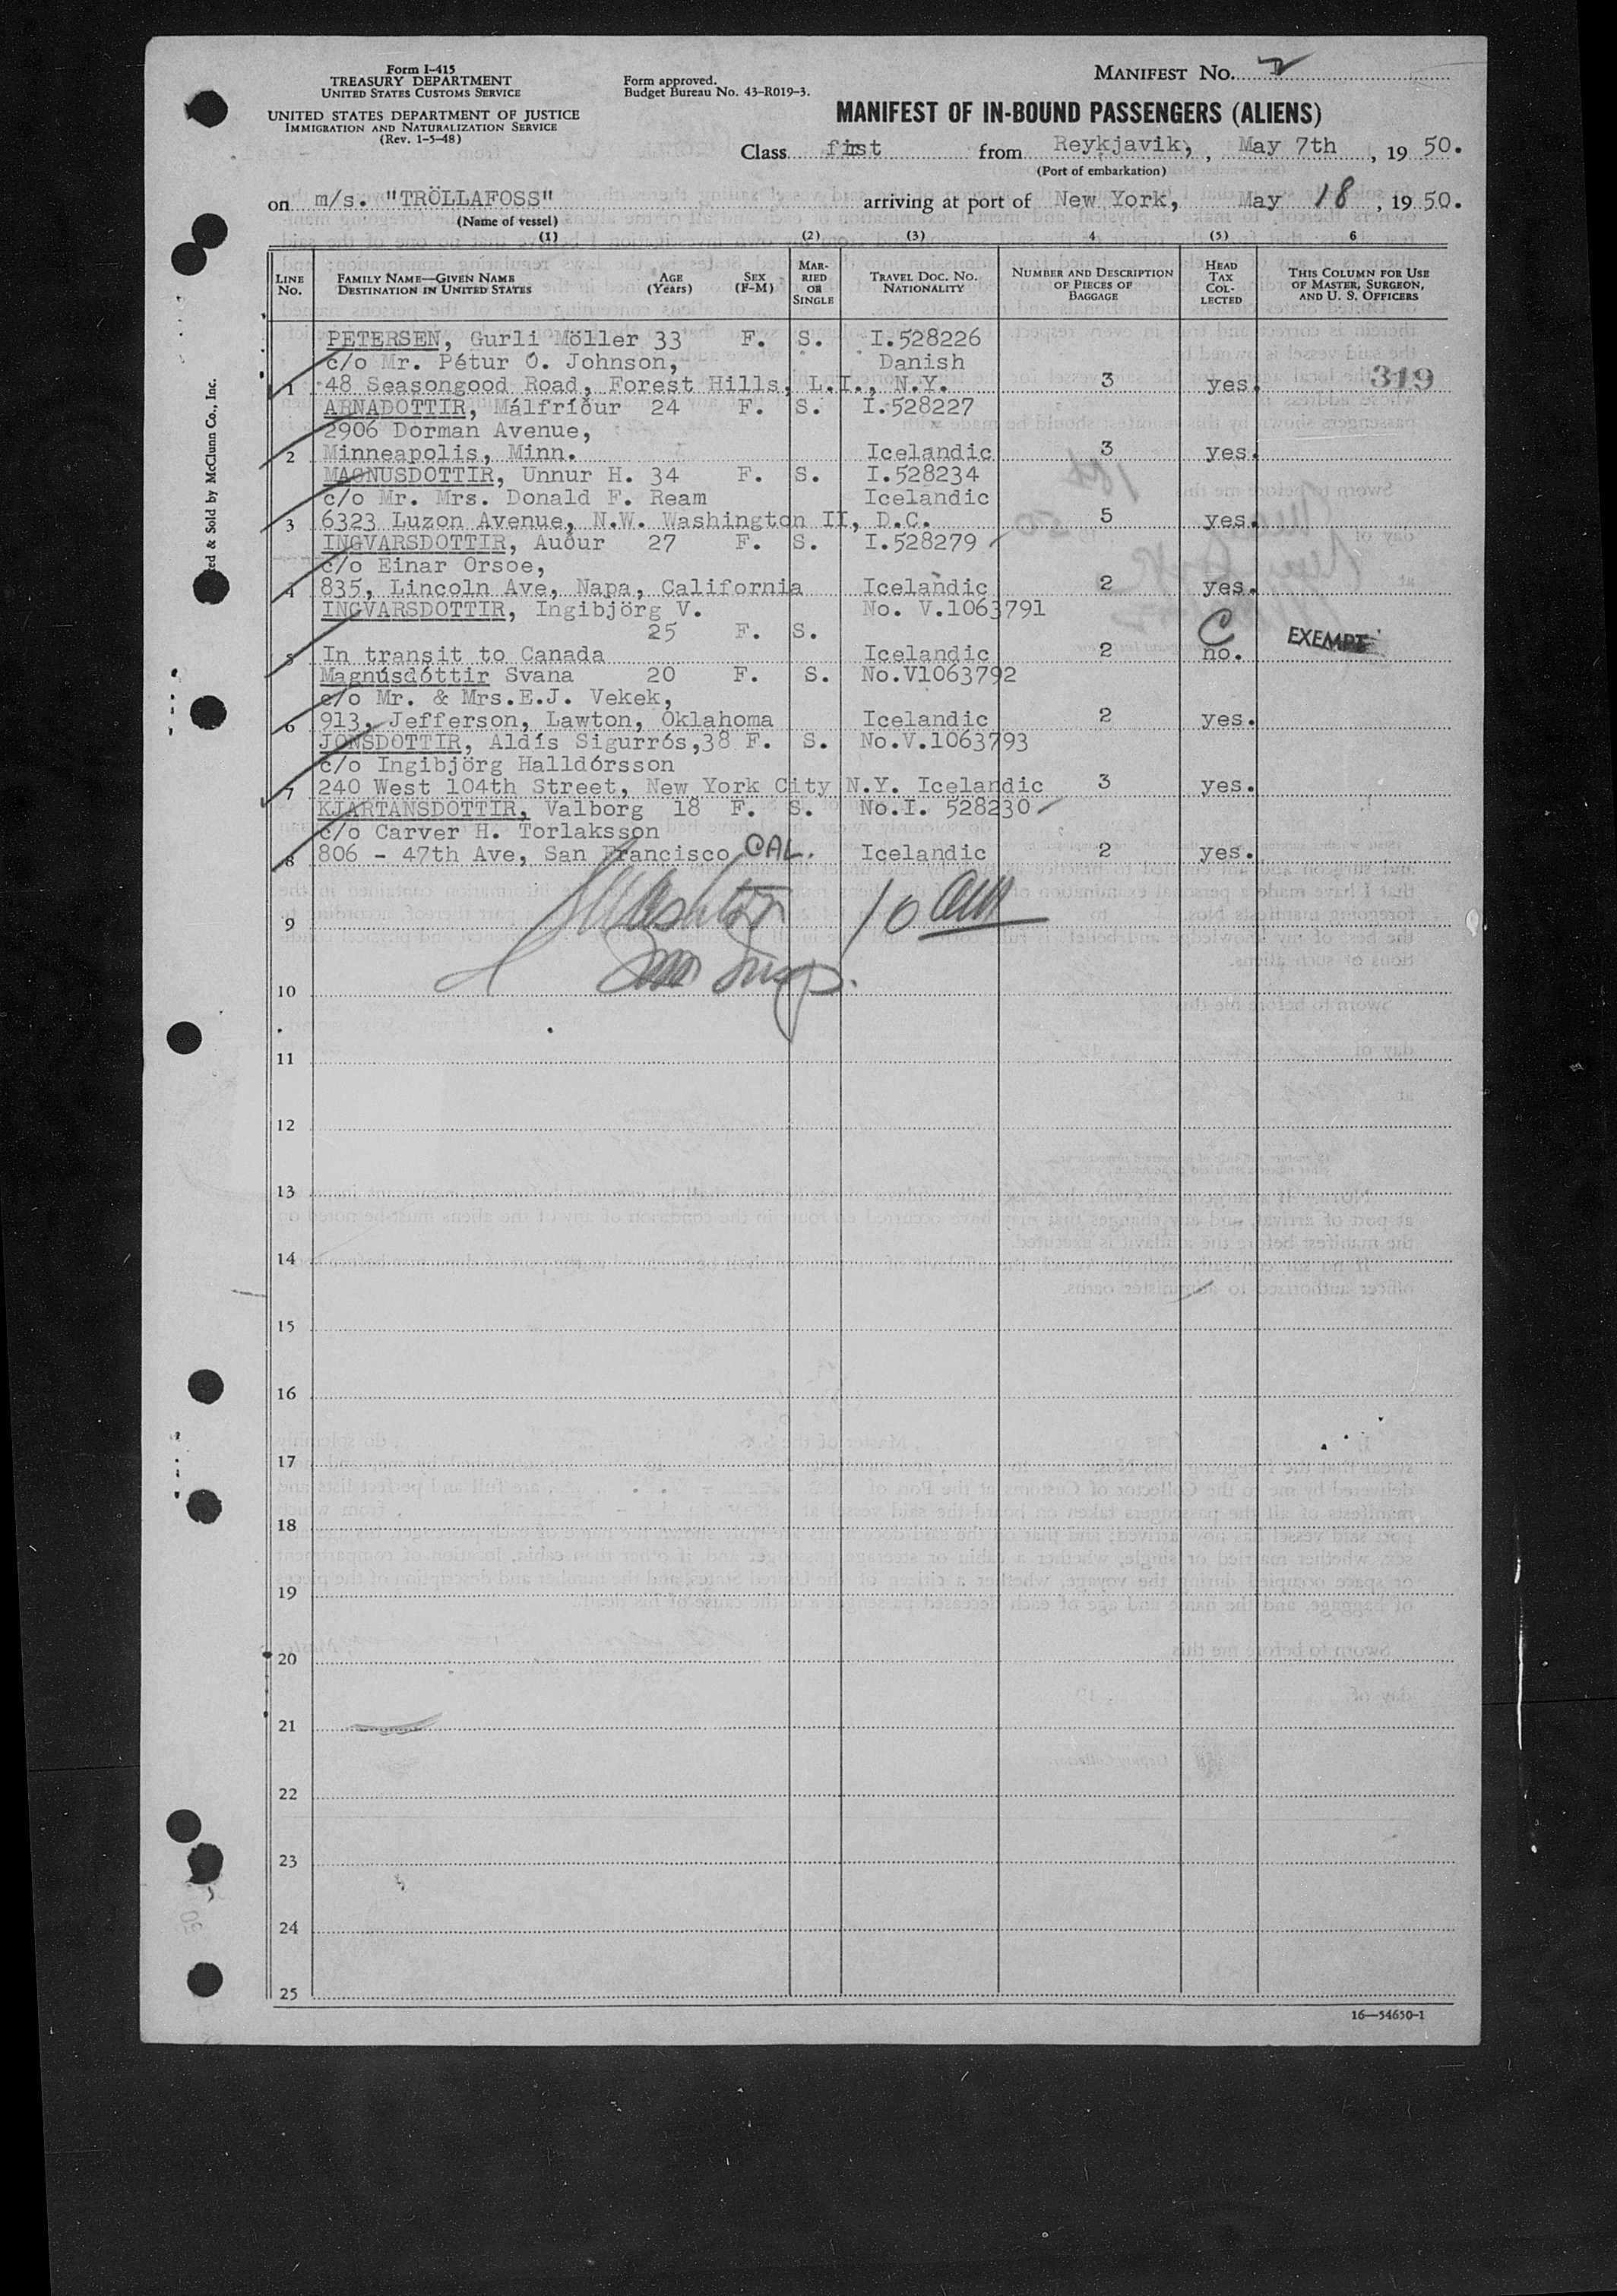 Form I-415
TREASURY DEPARTMENT
UNITED STATES CUSTOMS SERVICE
UNITED STATES DEPARTMENT OF JUSTICE
IMMIGRATION AND NATURALIZATION SERVICE
(Rev. 1-5-48)
Form approved.
Budget Bureau No. 43-R019-3.
MANIFEST No. 2
MANIFEST OF IN-BOUND PASSENGERS (ALIENS)
Class first from Reykjavik, , May 7th , 19 50.
(Port of embarkation)
on m/s. "TRÖLLAFOSS" arriving at port of New York, May 18 , 19 50.
(Name of vessel)
(1) (2) (3) 4 (5) 6
LINE No. FAMILY NAME—GIVEN NAME DESTINATION IN UNITED STATES AGE (Years) SEX (F-M) MARRIED OR SINGLE TRAVEL DOC. NO. NATIONALITY NUMBER AND DESCRIPTION OF PIECES OF BAGGAGE HEAD TAX COLLECTED THIS COLUMN FOR USE OF MASTER, SURGEON, AND U. S. OFFICERS
PETERSEN, Gurli Möller 33 F. S. I.528226
c/o Mr. Pétur O. Johnson, Danish
1 48 Seasongood Road, Forest Hills, L.I., N.Y. 3 yes. 319
ARNADOTTIR, Málfríður 24 F. S. I.528227
2906 Dorman Avenue,
2 Minneapolis, Minn. Icelandic 3 yes.
MAGNUSDOTTIR, Unnur H. 34 F. S. I.528234
c/o Mr. Mrs. Donald F. Ream Icelandic
3 6323 Luzon Avenue, N.W. Washington II, D.C. 5 yes.
INGVARSDOTTIR, Auður 27 F. S. I.528279
c/o Einar Orsoe,
4 835, Lincoln Ave, Napa, California Icelandic 2 yes.
INGVARSDOTTIR, Ingibjörg V. No. V.1063791
25 F. S. C EXEMPT
5 In transit to Canada Icelandic 2 no.
Magnúsdóttir Svana 20 F. S. No.V1063792
c/o Mr. & Mrs.E.J. Vekek,
6 913, Jefferson, Lawton, Oklahoma Icelandic 2 yes.
JONSDOTTIR, Aldís Sigurrós,38 F. S. No.V.1063793
c/o Ingibjörg Halldórsson
7 240 West 104th Street, New York City N.Y. Icelandic 3 yes.
KJARTANSDOTTIR, Valborg 18 F. S. No.I. 528230
c/o Carver H. Torlaksson
8 806 - 47th Ave, San Francisco CAL. Icelandic 2 yes.
9 10 am
10
11
12
13
14
15
16
17
18
19
20
21
22
23
24
25
16—54650-1
ed & Sold by McClunn Co., Inc.